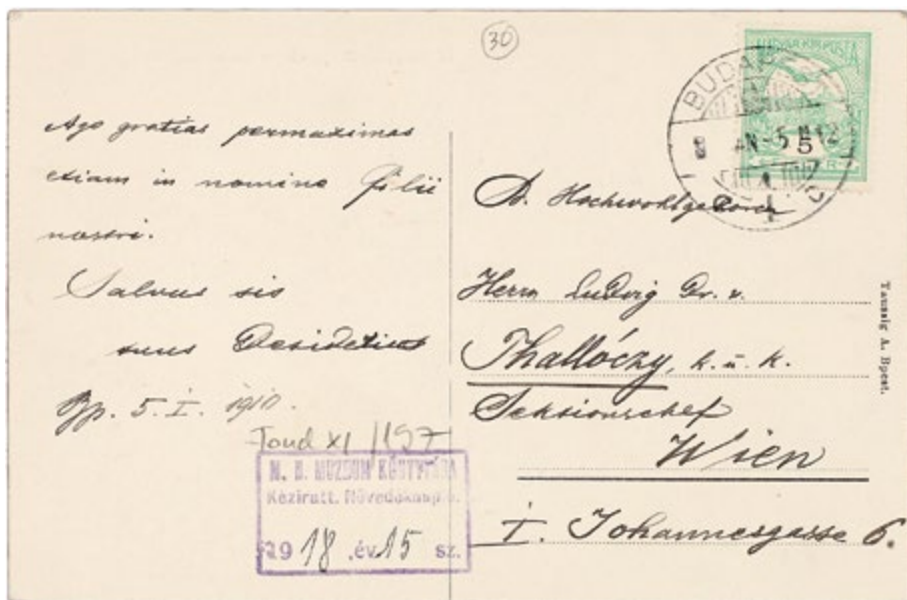 30
Ago gratias permaximas
etiam in nomine Filii
nostri.
Salvus sis
tuus Desiderius
Bp. 5. I. 1910.
Fond XI/197
M. N. MUZEUM KÖNYVTÁRA
Kéziratt. Növedéknapló
1918 .év 15 sz.
MAGYAR KIR. POSTA
BUDAP
5
S. Hochwohlgeboren
Herrn Ludvig Dr. v.
Thallóczy, k. u. k.
Sektionschef
Wien
I. Johannesgasse 6.
Taussig A. Bpest.